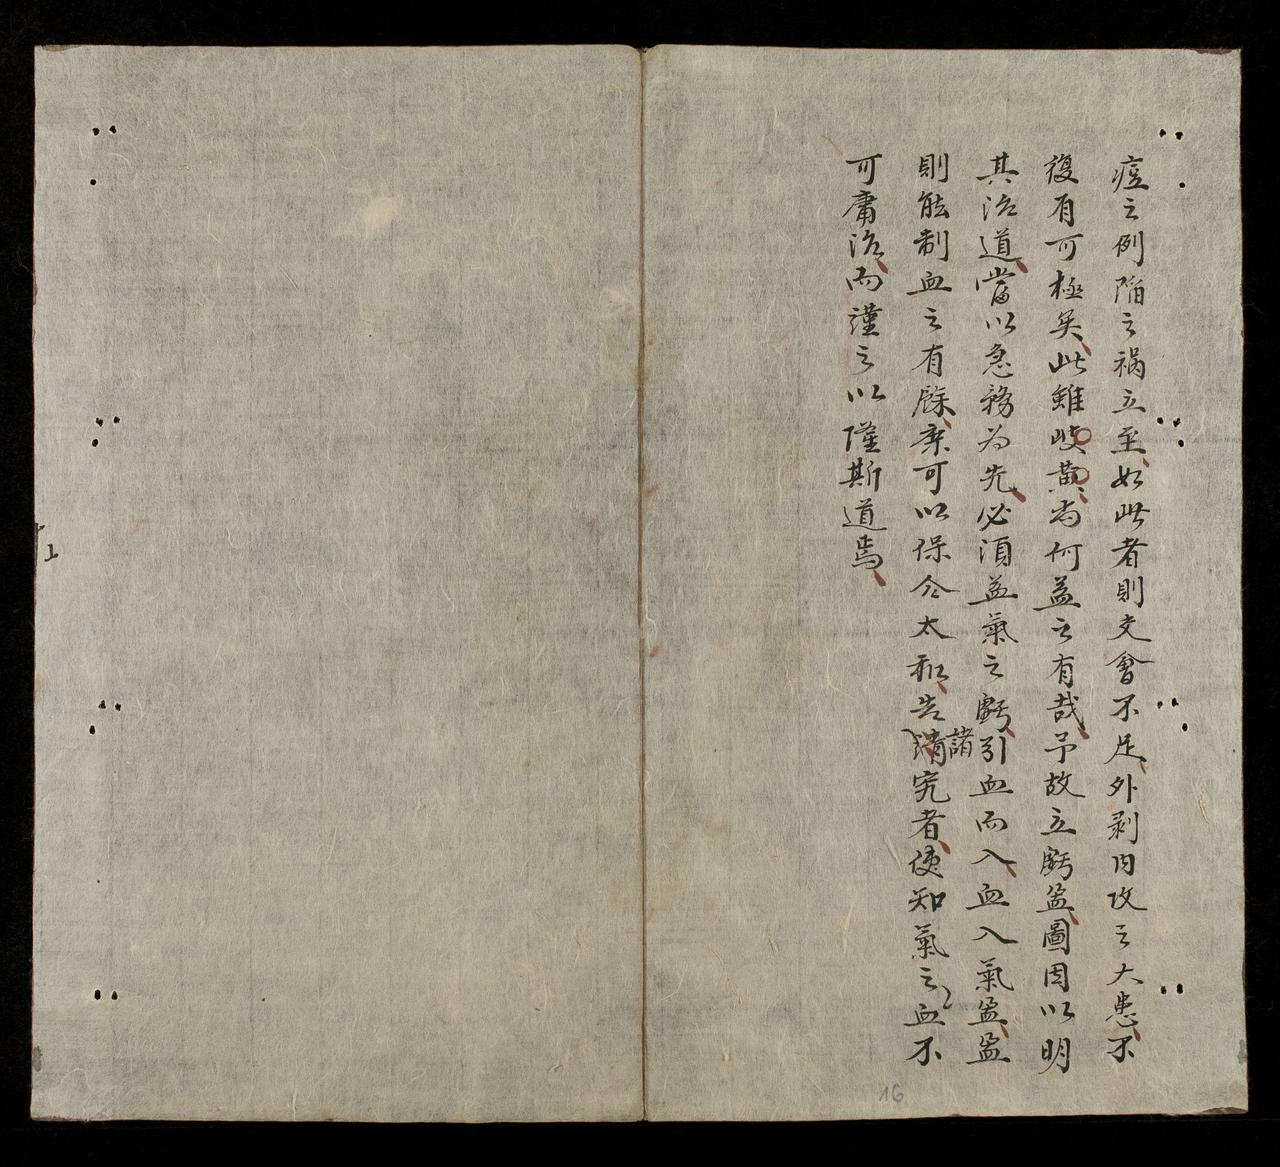 痘之例陥之禍立至如此者則交會不足外剥内攻之大患不
復有可極矣此雖岐黄尚何益之有哉予故立虧盈圖因以明
其治道當以急務为先必須益氣之虧引血而入血入氣盈盈
則能制血之有餘庶可以保仝太和告諸精究者使知氣之血不
可庸治而謹之以隆斯道焉
16